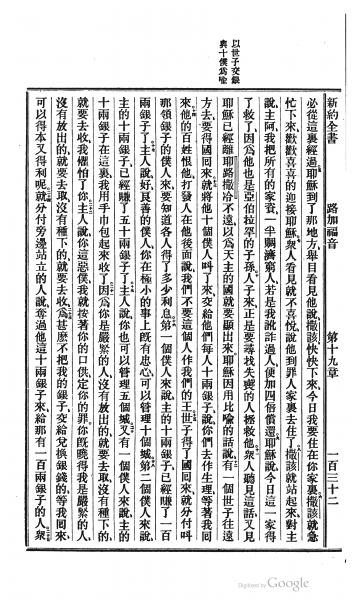 新約全書 路加福音 第十九章 一百三十二
以世子交銀
與十僕爲喻
必從這裏經過耶穌到了那地方舉目看見他說撒該快快下來今日我要住在你家裏撒該就急
忙下來歡歡喜喜的迎接耶穌衆人看見就不喜悅說他到罪人家裏去住了撒該就站起來對主
說主阿我把所有的家貲一半賙濟窮人若是我訛詐過人便加四倍償還耶穌說今日這一家得
了救了因爲他也是亞伯拉罕的子孫人子來正是要尋找失喪的人極救他衆人聽見這話又見
耶穌已經離耶路撒冷不遠以爲天主的國就要顯出來耶穌因用比喻的話說有一個世子往遠
方去要得國回來就將他十個僕人叫了來交給他們每人十兩銀子說你們去作生理等著我回
來他的百姓恨他打發人在他後面說我們不要這個人作我們的王世子得了國回來就分付叫
那領銀子的僕人來要知道各人得了多少利息第一個僕人來說主的十兩銀子已經賺了一百
兩銀子了主人說好良善的僕人你在極小的事上旣有忠心可以管理十個城第二個僕人來說
主的十兩銀子已經賺了五十兩銀子了主人說你也可以管理五個城又有一個僕人來說主的
十兩銀子在這裏我用手巾包起來收了因爲你是嚴緊的人沒有放出的就要去取沒有種下的
就要去收我懼怕了你主人說你這惡僕我就按著你的口供定你的罪你旣曉得我是嚴緊的人
沒有放出的就要去取沒有種下的就要去收爲甚麼不把我的銀子交給兌換銀錢的等我回來
可以得本又得利呢就分付旁邊站立的人說奪過他這十兩銀子來給那有一百兩銀子的人衆
Digitized by Google